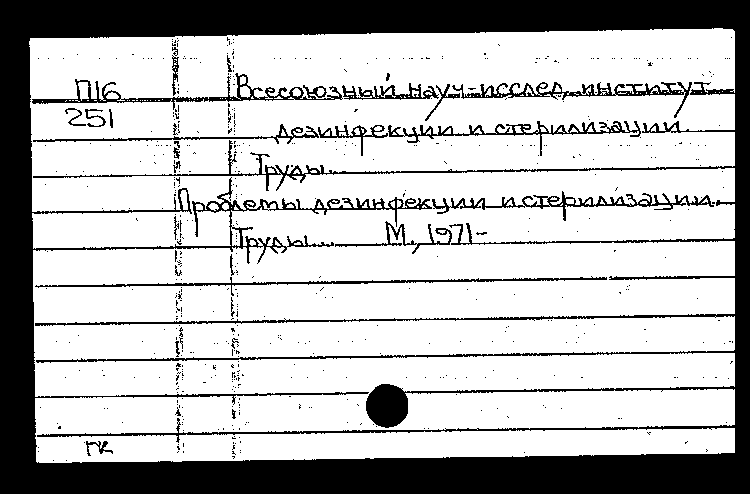 П16
251
Всесоюзный науч-исслед. институт
дезинфекции и стерилизации.
Труды...
Проблемы дезинфекции и стерилизации.
Труды... М., 1971-
ГК